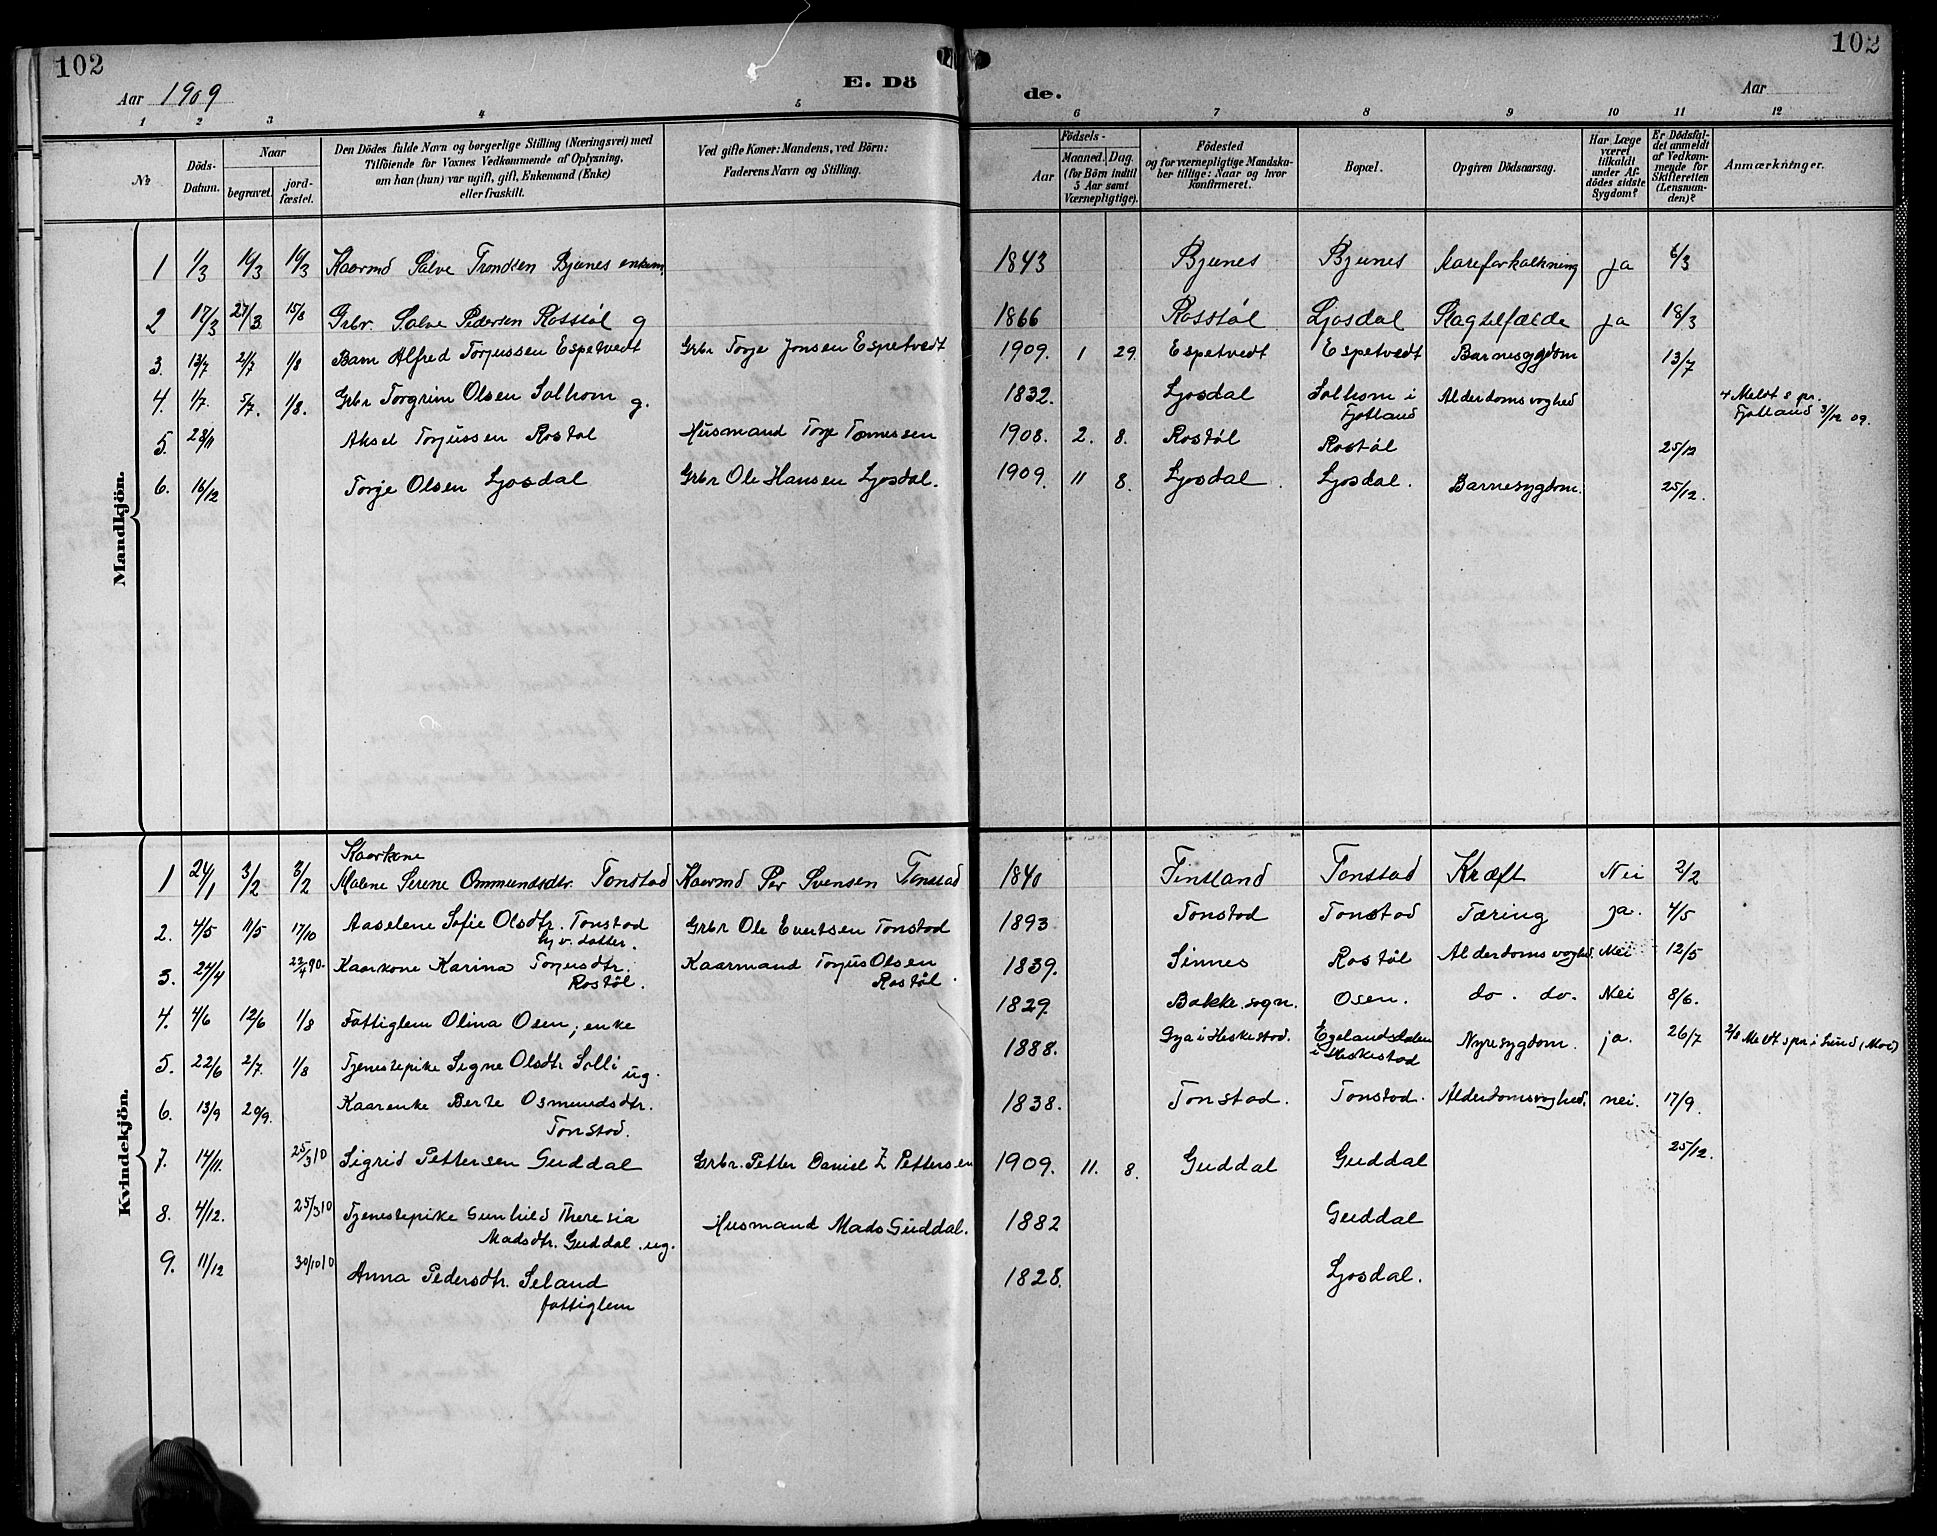 102
102
Aar 1909
E. Dö
de.
Aar
1 2 3 4 5 6 7 8 9 10 11 12
№
Döds-Datum.
Naar
begravet.
jord-fæstet.
Den Dödes fulde Navn og borgerlige Stilling (Næringsvei) med
Tilföiende for Voxnes Vedkommende af Oplysning,
om han (hun) var ugift, gift, Enkemand (Enke)
eller fraskilt.
Ved gifte Koner: Mandens, ved Börn:
Faderens Navn og Stilling.
Födsels-
Aar
Maaned. Dag.
(for Börn indtil
5 Aar samt
Værnepligtige).
Födested
og for værnepligtige Mandska-
ber tillige: Naar og hvor
konfirmeret.
Bopæl.
Opgiven Dödsaarsag.
Har Læge
været
tilkaldt
under Af-
dödes sidste
Sygdom?
Er Dödsfal-
det anmeldt
af Vedkom-
mende for
Skifteretten
(Lensman-
den)?
Anmærkninger.
Mandkjön.
1 1/3 16/3 16/3 Kaarmd Salve Trondsen Bjunes enkem. 1843 Bjunes Bjunes Aareforkalkning ja 6/3
2 17/3 27/3 15/8 Grbr. Salve Pedersen Rosstøl g 1866 Rosstøl Ljosdal Slagtilfælde ja 18/3
3. 13/7 21/7 1/8 Barn Alfred Torjussen Espetvedt Grbr Torje Jonsen Espetvedt 1909. 1 29. Espetvedt Espetvedt Barnesygdom 13/7
4. 1/7. 5/7. 1/8. Grbr Torgrim Olsen Solhom g. 1832. Ljosdal Solhom i Fjotland Alderdomsvaghed Meldt s pr. Fjotland 31/12 09.
5. 28/11 Aksel Torjussen Rostøl Husmand Torje Tønnessen 1908. 2. 8. Rostøl Rostøl 25/12
6. 16/12 Torje Olsen Ljosdal Grbr Ole Hansen Ljosdal. 1909. 11 8. Ljosdal. Ljosdal. Barnesygdom. 25/12.
Kvindekjön.
Kaarkone
1 24/1 3/2 3/2 Malene Serene Ommundsdtr. Tonstad Kaarmd Per Svensen Tonstad 1840 Finsland Tonstad Kræft Nei 2/2
2. 4/5 11/5 17/10 Aaselene Sofie Olsdtr. Tonstad Grbr Ole Evertsen Tonstad 1893 Tonstad Tonstad Tæring ja. 4/5
hj.v. datter.
3. 24/4 23/4 90. Kaarkone Karina Torjusdtr. Rostøl. Kaarmand Torjus Olsen Rostøl. 1839. Sinnes Rostøl Alderdomsvaghed. Nei 12/5
4. 4/6 12/6 1/8 Fattiglem Olina Osen, enke 1829. Bakke sogn. Osen. do. do. Nei 8/6.
5. 22/6 2/7. 1/8 Tjenestepike Signe Olsdtr Solli ug. 1888. Gya i Heskestad. Egelandsdalen i Heskestad Nyresygdom. ja. 26/7 2/8 Meldt s pr i Lund (Moi)
6. 13/9 20/9. Kaarenke Berte Osmundsdtr. Tonstad. 1838. Tonstad. Tonstad. Alderdomsvaghed. nei. 17/9.
7. 14/11. 25/3 10 Sigrid Pettersen Guddal Grbr. Petter Daniel Z Pettersen 1909. 11. 8. Guddal Guddal 25/12.
8. 4/12. 25/3 10 Tjenestepike Gunhild Theresia Madsdtr. Guddal. ug. Husmand Mads Guddal. 1882 Guddal
9. 11/12 30/10 10 Anna Pedersdtr. Seland 1828. Ljosdal.
fattiglem